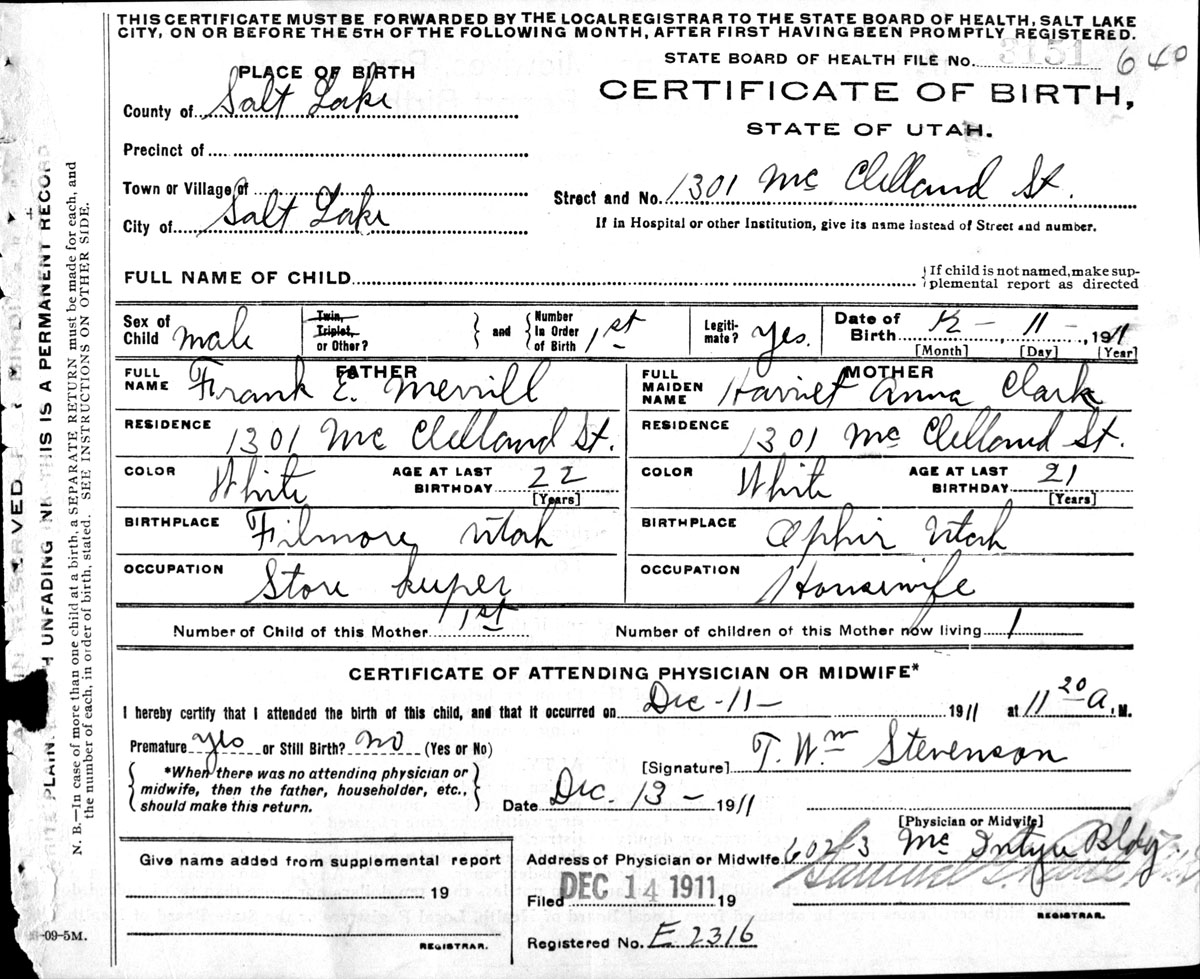 THIS CERTIFICATE MUST BE FORWARDED BY THE LOCAL REGISTRAR TO THE STATE BOARD OF HEALTH, SALT LAKE
CITY, ON OR BEFORE THE 5TH OF THE FOLLOWING MONTH, AFTER FIRST HAVING BEEN PROMPTLY REGISTERED.
STATE BOARD OF HEALTH FILE No. 3151 640
PLACE OF BIRTH
CERTIFICATE OF BIRTH,
County of Salt Lake
STATE OF UTAH.
Precinct of
Town or Village of
Street and No. 1301 Mc Clelland St.
City of Salt Lake
If in Hospital or other Institution, give its name instead of Street and number.
FULL NAME OF CHILD
If child is not named, make sup-
plemental report as directed
Sex of Child male
Twin, Triplet, or Other? and Number In Order of Birth 1st
Legiti-mate? yes.
Date of Birth 12 - 11 - , 1911
[Month] [Day] [Year]
FATHER
FULL NAME Frank E. Merrill
MOTHER
FULL MAIDEN NAME Harriet Anna Clark
RESIDENCE 1301 Mc Clelland St.
RESIDENCE 1301 Mc Clelland St.
COLOR White AGE AT LAST BIRTHDAY 22 [Years]
COLOR White AGE AT LAST BIRTHDAY 21 [Years]
BIRTHPLACE Filmore Utah
BIRTHPLACE Ophir Utah
OCCUPATION Store keeper
OCCUPATION Housewife
Number of Child of this Mother 1st
Number of children of this Mother now living 1
CERTIFICATE OF ATTENDING PHYSICIAN OR MIDWIFE*
I hereby certify that I attended the birth of this child, and that it occurred on Dec - 11 - 1911 at 11 20 A. M.
Premature yes or Still Birth? no (Yes or No)
[Signature] T. Wm Stevenson
*When there was no attending physician or
midwife, then the father, householder, etc.,
should make this return.
Date Dec. 13 - 1911
[Physician or Midwife]
Address of Physician or Midwife. 602-3 Mc Intyre Bldg.
Give name added from supplemental report
19
REGISTRAR.
Filed DEC 14 1911 19
REGISTRAR.
Registered No. E 2316
-09-5M.
UNFADING INK—THIS IS A PERMANENT RECORD
N. B.—In case of more than one child at a birth, a SEPARATE RETURN must be made for each, and
the number of each, in order of birth, stated. SEE INSTRUCTIONS ON OTHER SIDE.